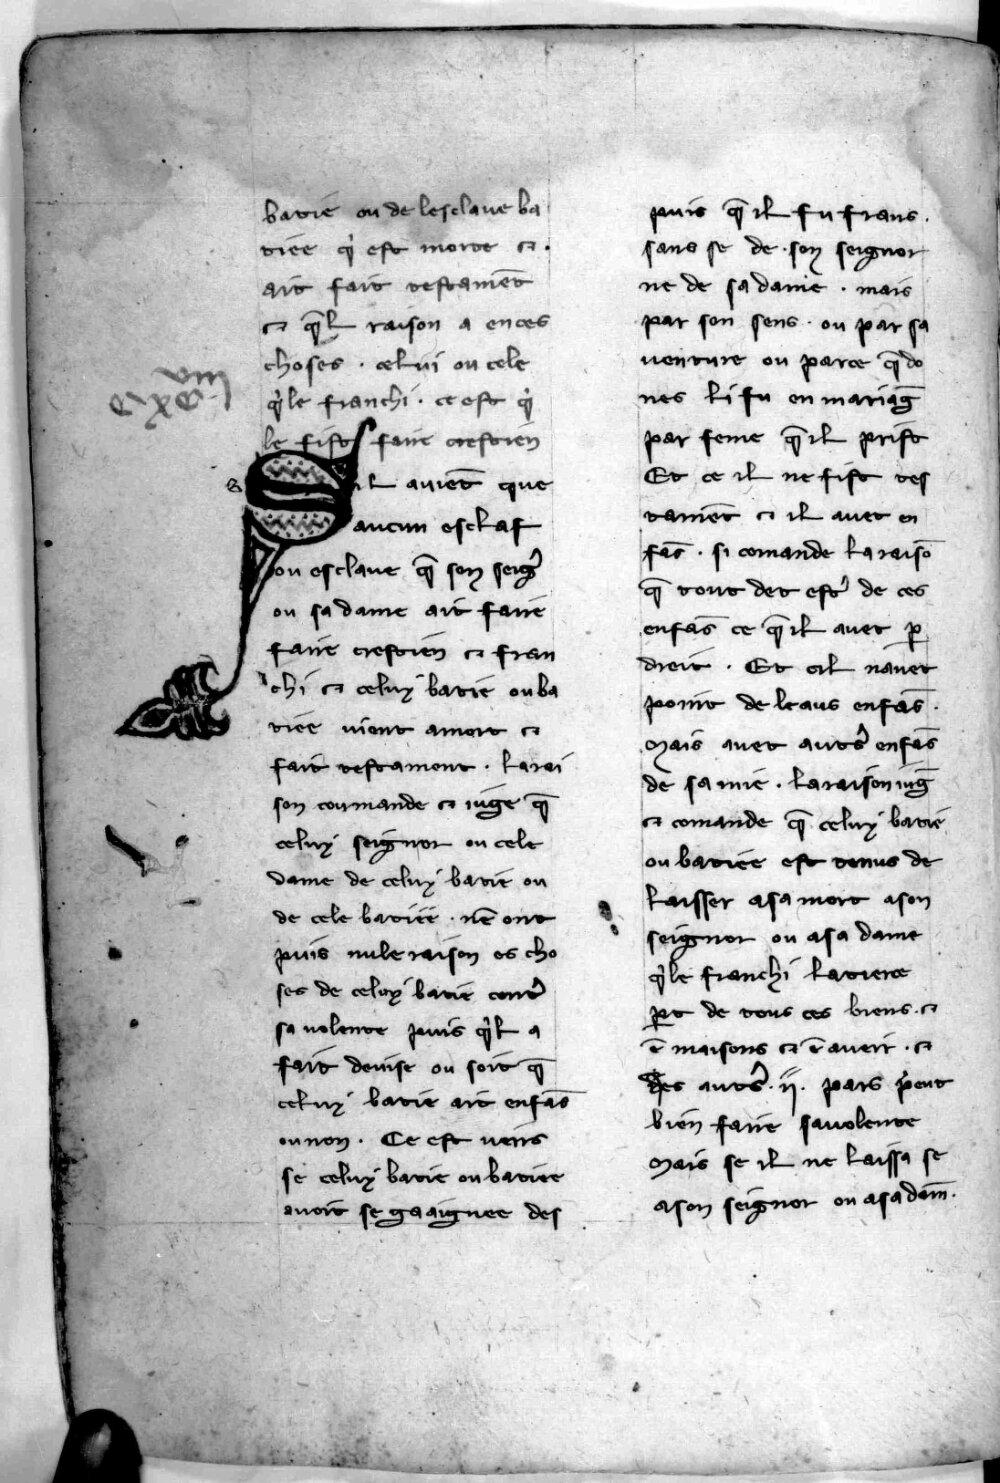 batie ou de lesclaue ba
tiee q̇ est morte ⁊.
ait fait testamēt
⁊ q̄l raison a en ces
choses . celui ou cele
q̇le franchi . ce est q̇
le fist faire crestien
S il auiēt que
aucun esclaf
ou esclaue q̄ son seigr̉
ou sa dame ait faire
faire crestien ⁊ fran
chi ⁊ celuy batie ou ba
tiee vient a mort ⁊
fait testament . la rai
son coumande ⁊ iuge q̄
celuy seignor ou cele
dame de celuy batie ou
de cele batiee . nē ont
puis nule raison es cho
ses de celuy batie contr̉
sa uolente puis q̇l a
fait deuise ou soit q̄
celuy batie ait enfās
ou non . Ce est veirs
se celuy batie ou batiee
auoit se gaaignee des
puis q̄ il fu frans .
sans se de . son seignor
ne de sa dame . mais
par son sens . ou par sa
uenture ou parce q̄ do
nes li fu en mariaḡ
par feme q̄ il prist
Et ce il ne fist tes
tamēt ⁊ il auet en
fās . si comande la raisō
q̄ tout det estr̉ de ces
enfās ce q̄ il auet p̱
dreit . Et cil nauet
point de leaus enfās .
Mais auet autr̉s enfās
de sa mie . la raison iuḡ
⁊ comande q̄ celuy batie
ou batiee est tenus de
laisser a sa mort a son
seignor ou a sa dame
q̇le franchi la tierce
p̱t de tous ces biens . ⁊
ē maisons ⁊ ē aueir . ⁊
des autr̉s . ii . pars peut
bien faire sa uolente
Mais se il ne laissa se
a son seignor ou a sa dam̄.